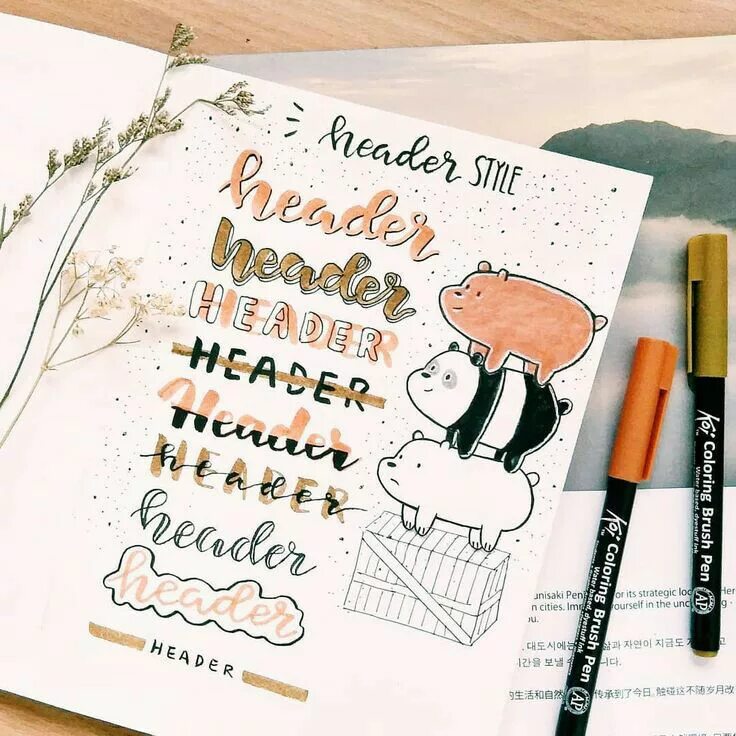 header STYLE
header
header
HEADER
HEADER
Header
HEADER
header
header
header
HEADER
Koi Coloring Brush Pen
Water based, dyestuff ink
AP
Koi Coloring Brush Pen
Water based, dyestuff ink
AP
for its strategic
n cities.
yourself in the
ou.
대도시에는
삶과 자연이 지금도
시간을 보낼 수
입니다.
的生活和自然
传承到了今日,